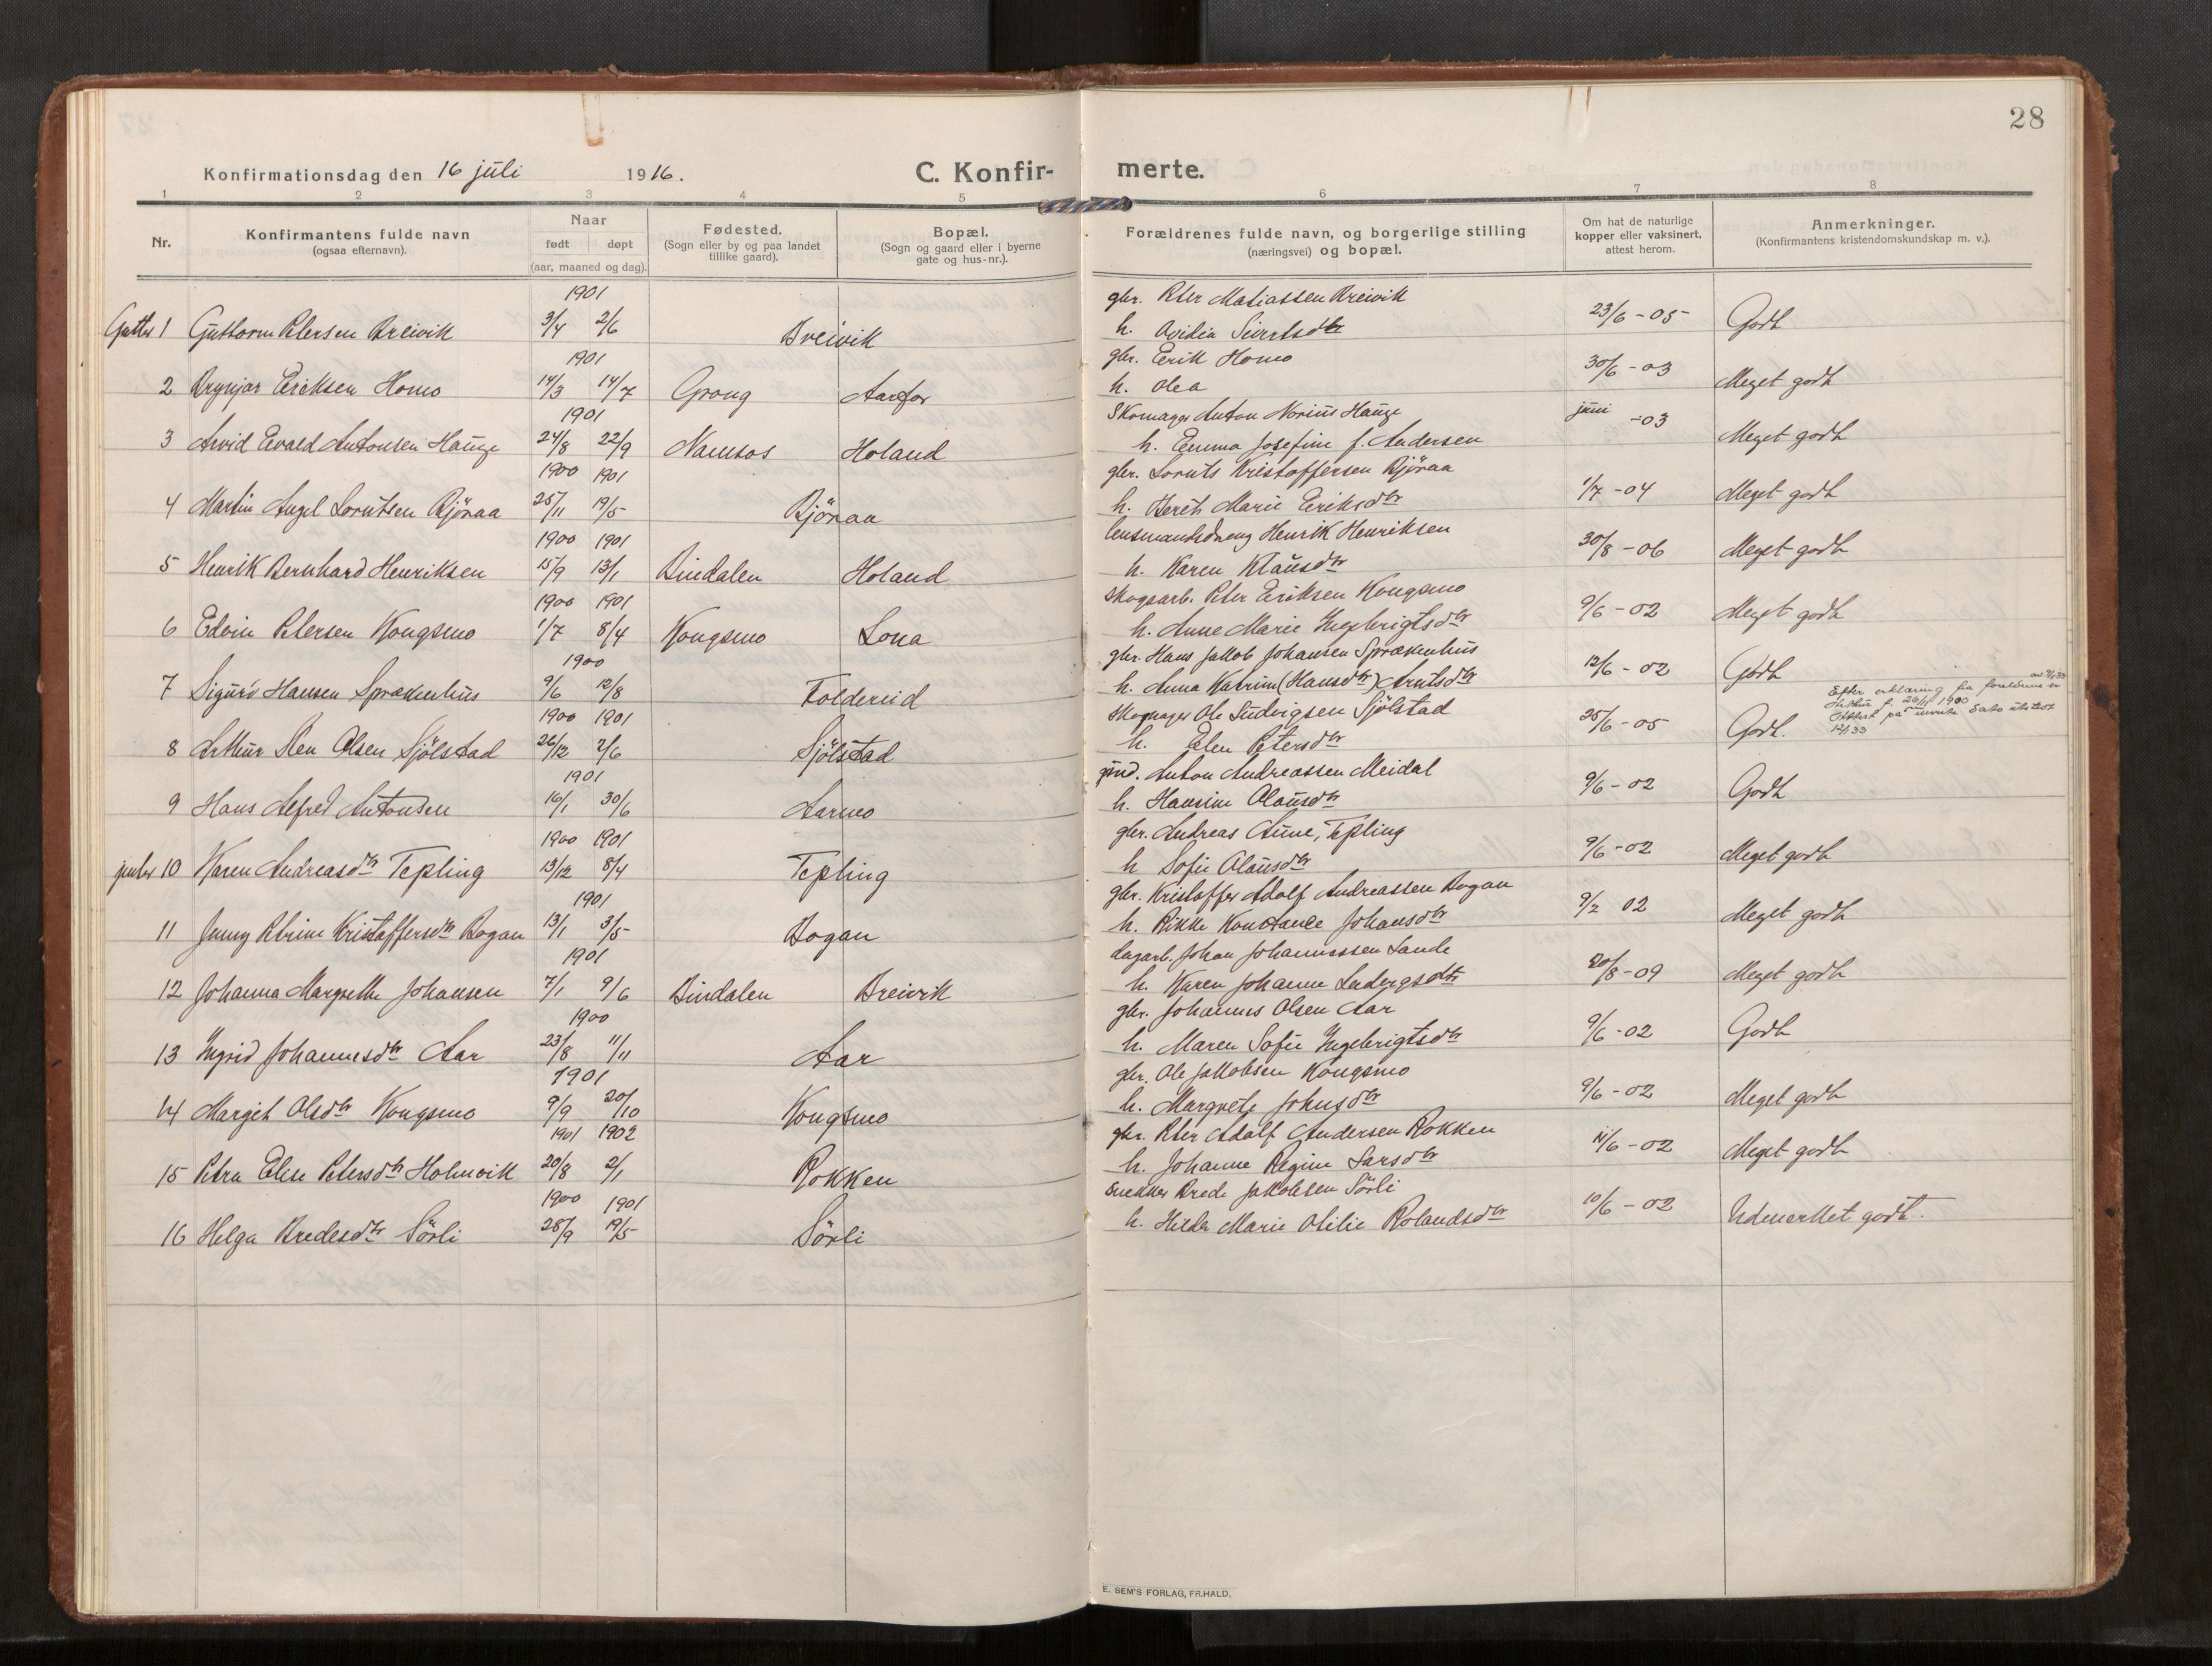 28
Konfirmationsdag den 16 juli 1916. C. Konfir- merte.
1 2 3 4 5 6 7 8
Nr. Konfirmantens fulde navn (ogsaa efternavn). Naar født døpt (aar, maaned og dag). Fødested. (Sogn eller by og paa landet tillike gaard). Bopæl. (Sogn og gaard eller i byerne gate og hus-nr.). Forældrenes fulde navn, og borgerlige stilling (næringsvei) og bopæl. Om hat de naturlige kopper eller vaksinert, attest herom. Anmerkninger. (Konfirmantens kristendomskundskap m. v.).
1901 gbr. Peter Matiassen Breivik
Gutter 1 Guttorm Petersen Breivik 3/4 2/6 Breivik h. Ovidia Sivertsdtr 23/6-05 Godt
1901 gbr. Erik Homo
2 Brynjar Eriksen Homo 14/3 14/7 Grong Aarfor h. Olea 30/6-03 Meget godt
1901 Skomager Anton Norius Hauge
3 Arvid Evald Antonsen Hauge 24/8 22/9 Namsos Holand h. Emma Josefine f. Andersen juni -03 Meget godt
1900 1901 gbr. Lornts Kristoffersen Björaa
4 Martin Angel Lorntsen Björaa 25/11 19/5 Björaa h. Berit Marie Eriksdtr 1/7-04 Meget godt
1900 1901 lensmandsdreng Henrik Henriksen
5 Henrik Bernhard Henriksen 15/9 13/1 Bindalen Holand h. Karen Klausdtr 30/8-06 Meget godt
1900 1901 Skogsarb. Peter Eriksen Kongsmo
6 Edvin Petersen Kongsmo 1/7 8/4 Kongsmo Lona h. Anne Marie Ingebrigtsdtr 9/6-02 Meget godt
1900 gbr. Hans Jakob Johansen Sprækenhus
7 Sigurd Hansen Sprækenhus 9/6 12/8 Foldereid h. Anna Katrine (Hansdtr) Arntsdtr 12/6-02 Godt
1900 1901 Skomager Ole Ludvigsen Sjölstad
8 Arthur Sten Olsen Sjölstad 26/12 2/6 Sjölstad h. Elen Petersdtr 25/6-05 Godt. Efter erklæring fra foreldrene er Arthur f. 20/11 1900
1901 Anton Andreassen Meidal
9 Hans Alfred Antonsen 16/1 30/6 Aarmo h. Hansine Olausdtr 9/6-02 Godt
1900 1901 gbr. Andreas Aune, Tepling
10 Karen Andreasdtr Tepling 13/12 8/4 Tepling h Sofie Olausdtr 9/6-02 Meget godt
1901 gbr. Kristoffer Adolf Andreassen Bogan
11 Jenny Petrine Kristoffersdtr Bogan 13/1 3/5 Bogan h. Rikke Konstance Johansdtr 9/2 02 Meget godt
1901 dagarb. Johan Johannessen Sande
12 Johanna Margrethe Johansen 7/1 9/6 Bindalen Breivik h. Karen Johanne 20/8-09 Meget godt
1900 gbr. Johannes Olsen Aar
13 Ingrid Johannesdtr Aar 23/8 11/11 Aar h. Maren Sofie Ingebrigtsdtr 9/6-02 Godt
1901 gbr. Ole Jakobsen Kongsmo
14 Margit Olsdtr Kongsmo 9/9 20/10 Kongsmo h. Margrete Johnsdtr 9/6-02 Meget godt
1901 1902 gbr. Peter Adolf Andersen Rokken
15 Petra Elise Petersdtr Holmvik 20/8 2/1 Rokken h. Johanne Regine Larsdtr 11/6-02 Meget godt
1900 1901 Snekker Brede Jakobsen Sörli
16 Helga Bredesdtr Sörli 28/9 19/5 Sörli h. Hilda Marie Otilie Rolandsdtr 10/6-02 Udmerket godt.
E. SEM'S FORLAG, FR.HALD.